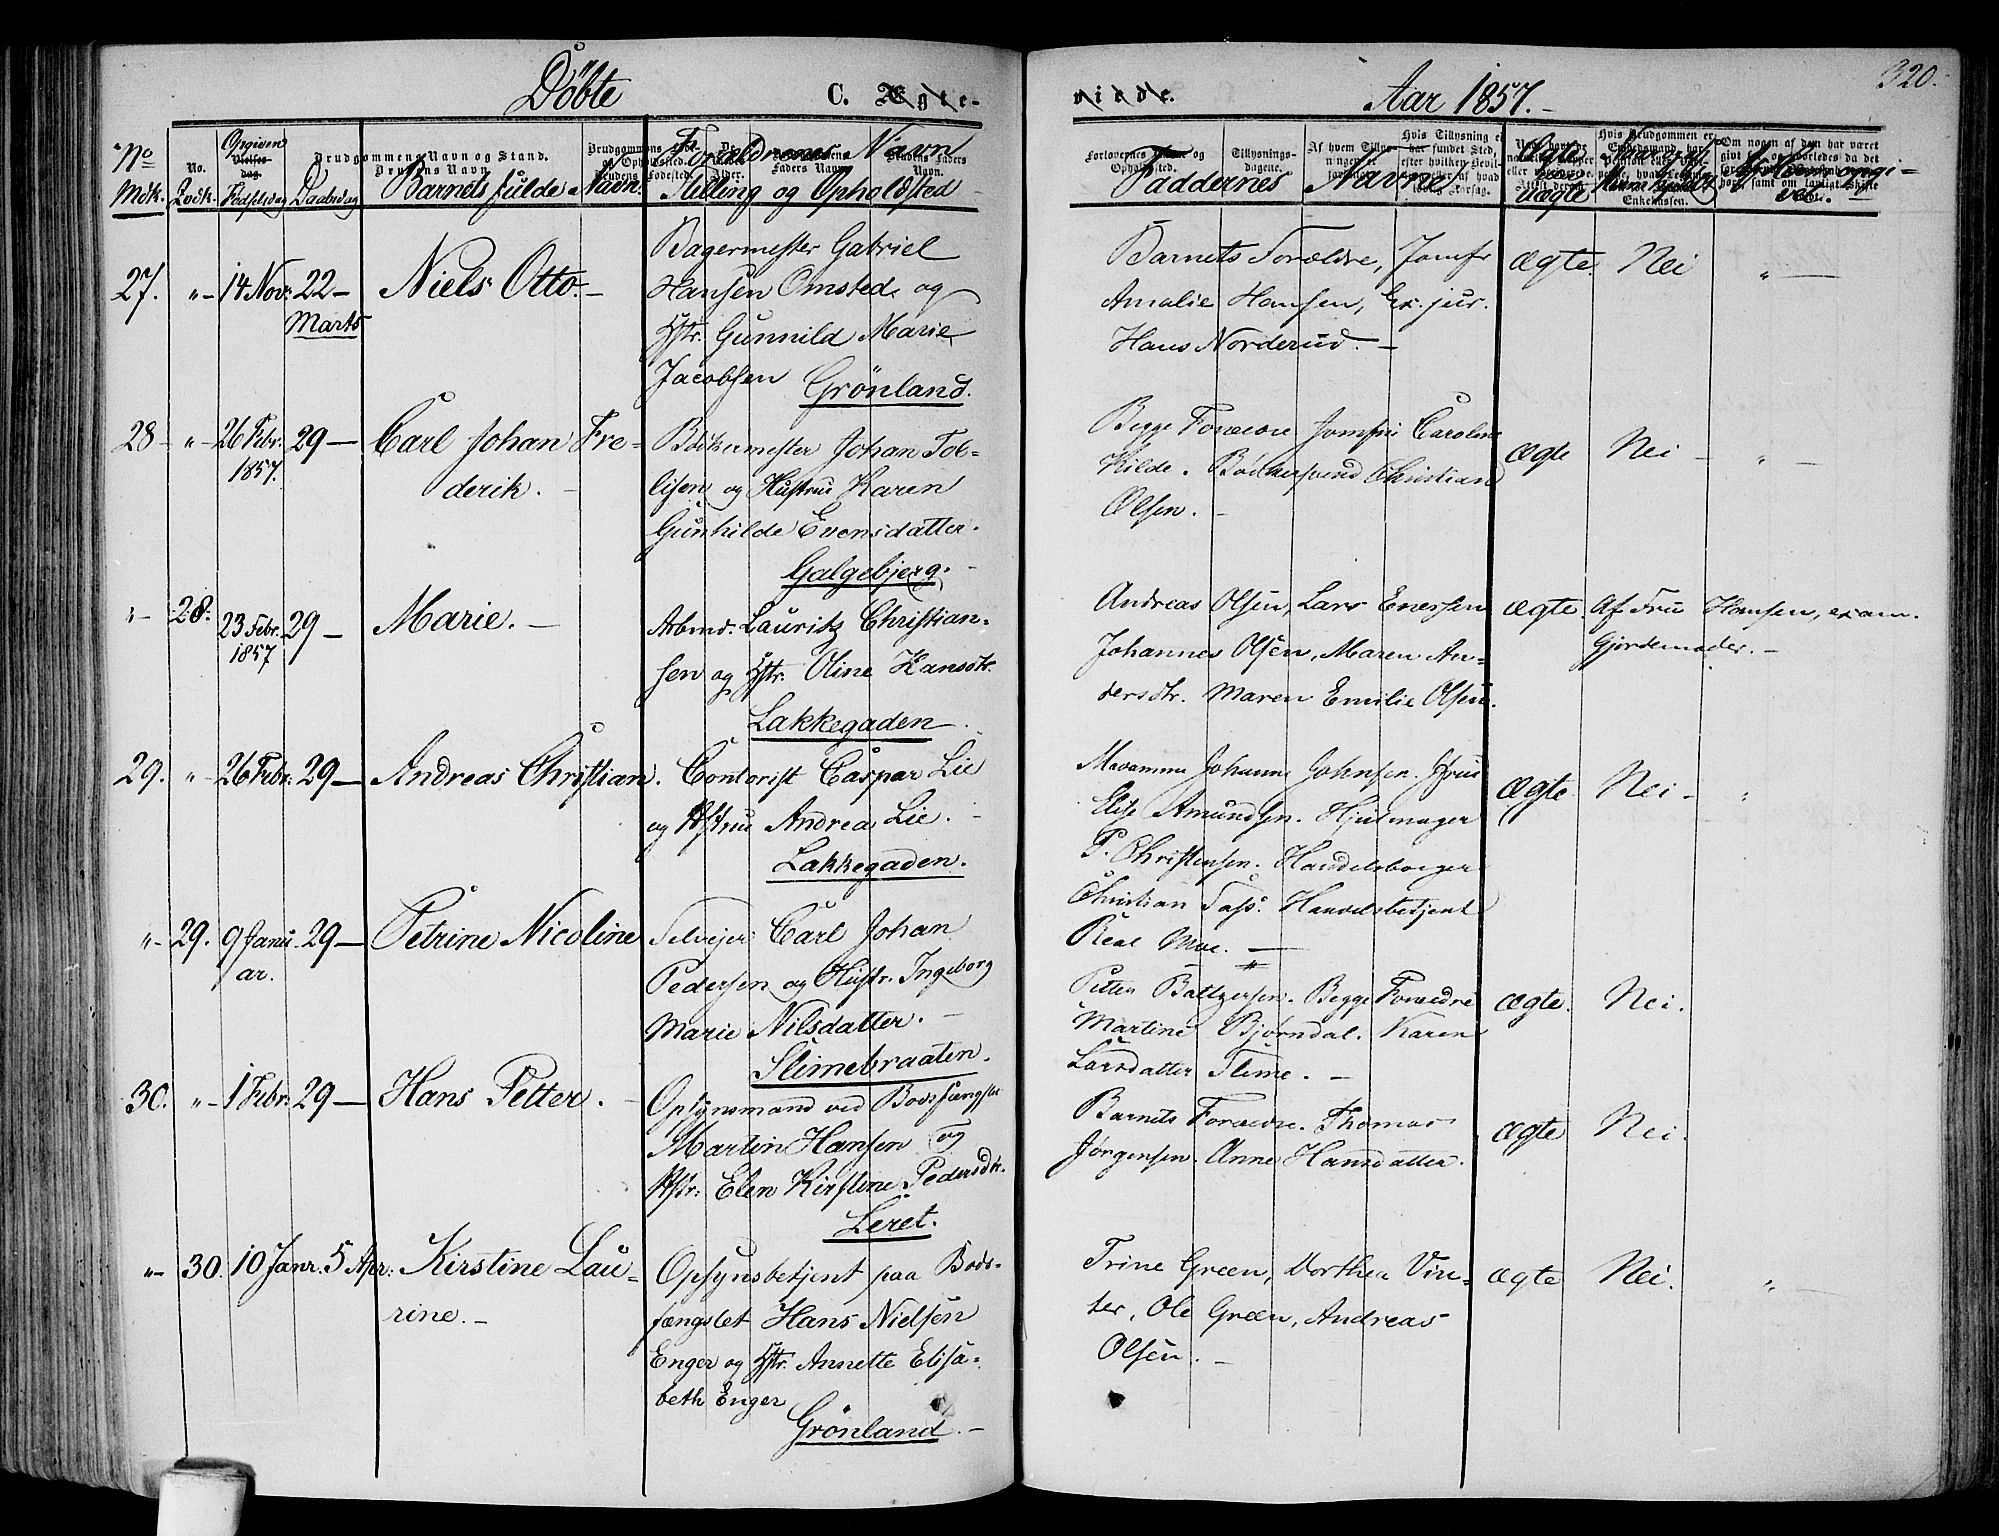 Döbte C. Ægte- viede. Aar 1857.- 320.
No Mdk. No. Qvdk. Opgiven Fødselsdag Daabsdag Barnets fulde Navn Forældrenes Navn Stilling og Opholdssted
Faddernes Navne Ægte eller uægte
27. "- 14 Nov: 22- Marts Niels Otto.-
Bagermester Gabriel
Hansen Omsted og
Hstr. Gunnild Marie
Jacobsen Grönland.
Barnets Forældre, Jomfr
Amalie Hansen, Ex. jur.
Hans Norderud.-
Ægte. Nei "-
28- "- 26 Febr. 1857. 29- Carl Johan Fre-
derik.-
Bödkermester Johan Tol-
lisen og Hustru Karen
Gunhilde Evensdatter.
Galgebjerg.-
Begge Forældre Jomfru Caroline
Kilde. Bödkersvend Christian
Olsen.-
ægte Nei- "-
"- 28. 23 Febr. 1857 29- Marie.-
Arbmd. Lauritz Christian-
sen og Hstr. Oline Hansdtr.
Lakkegaden.
Andreas Olsen, Lars Enersen
Johannes Olsen, Maren An-
dersdtr. Maren Emilie Olsen.
ægte. Af Fru Hansen, exam.
Gjordemoder.-
29. "- 26 Febr. 29- Andreas Christian.
Contorist Caspar Lie
og Hstru Andrea Lie.-
Lakkegaden.
Madamme Johanne Johnsen. Hfru
Elise Amundsen. Hjulmager
P. Christensen. Handelsborger
Christian Handelsbetjent
Real Moe.-
ægte. Nei- "
"- 29. 9 Janu-
ar. 29- Petrine Nicoline
Selvejer Carl Johan
Pedersen og Hustr. Ingeborg
Marie Nilsdatter.-
Slimebraaten.
Petter Baltzersen. Begge Forældre
Martine Bjørndal. Karen
Larsdatter Slime.-
ægte. Nei.
30. "- 1 Febr. 29- Hans Petter.-
Opsynsmand ved Bodsfængslet
Martin Hansen og
Hstr: Elen Kirstine Pedersdtr.
Leret.
Barnets Forældre. Thomas
Jørgensen. Anne Hansdatter.
ægte Nei.
"- 30. 10 Janr. 5 Apr: Kirstine Lau-
rine.-
Opsynsbetjent paa Bods-
fængslet Hans Nielsen
Enger og Hstr. Annette Elisa-
beth Enger
Grönland.-
Trine Green, Dorthea Vin-
ter, Ole Green, Andreas
Olsen.-
ægte Nei. "